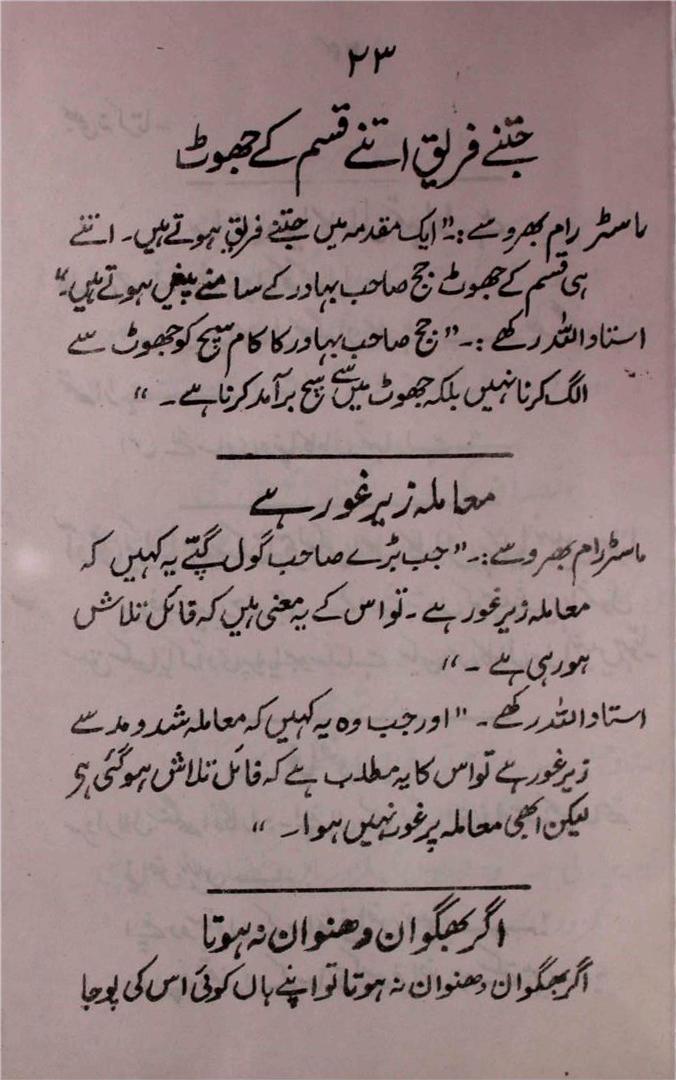 ۲۳
جتنے فریق اتنے قسم کے جھوٹ
ماسٹر رام بھروسے :۔ "ایک مقدمہ میں جتنے فریق ہوتے ہیں۔ اتنے
ہی قسم کے جھوٹ جج صاحب بہادر کے سامنے پیش ہوتے ہیں۔"
استاد اللہ رکھے :۔ "جج صاحب بہادر کا کام سچ کو جھوٹ سے
الگ کرنا نہیں بلکہ جھوٹ میں سے سچ برآمد کرنا ہے۔ "
معاملہ زیر غور ہے
ماسٹر رام بھروسے :۔ "جب بڑے صاحب گول گپے یہ کہیں کہ
معاملہ زیر غور ہے۔ تو اس کے یہ معنی ہیں کہ فائل تلاش
ہو رہی ہے۔ "
استاد اللہ رکھے۔ "اور جب وہ یہ کہیں کہ معاملہ شد و مد سے
زیر غور ہے تو اس کا یہ مطلب ہے کہ فائل تلاش ہو گئی ہے
لیکن ابھی معاملہ پر غور نہیں ہوا۔ "
اگر بھگوان دھنوان نہ ہوتا
اگر بھگوان دھنوان نہ ہوتا تو اپنے ہاں کوئی اس کی پوجا